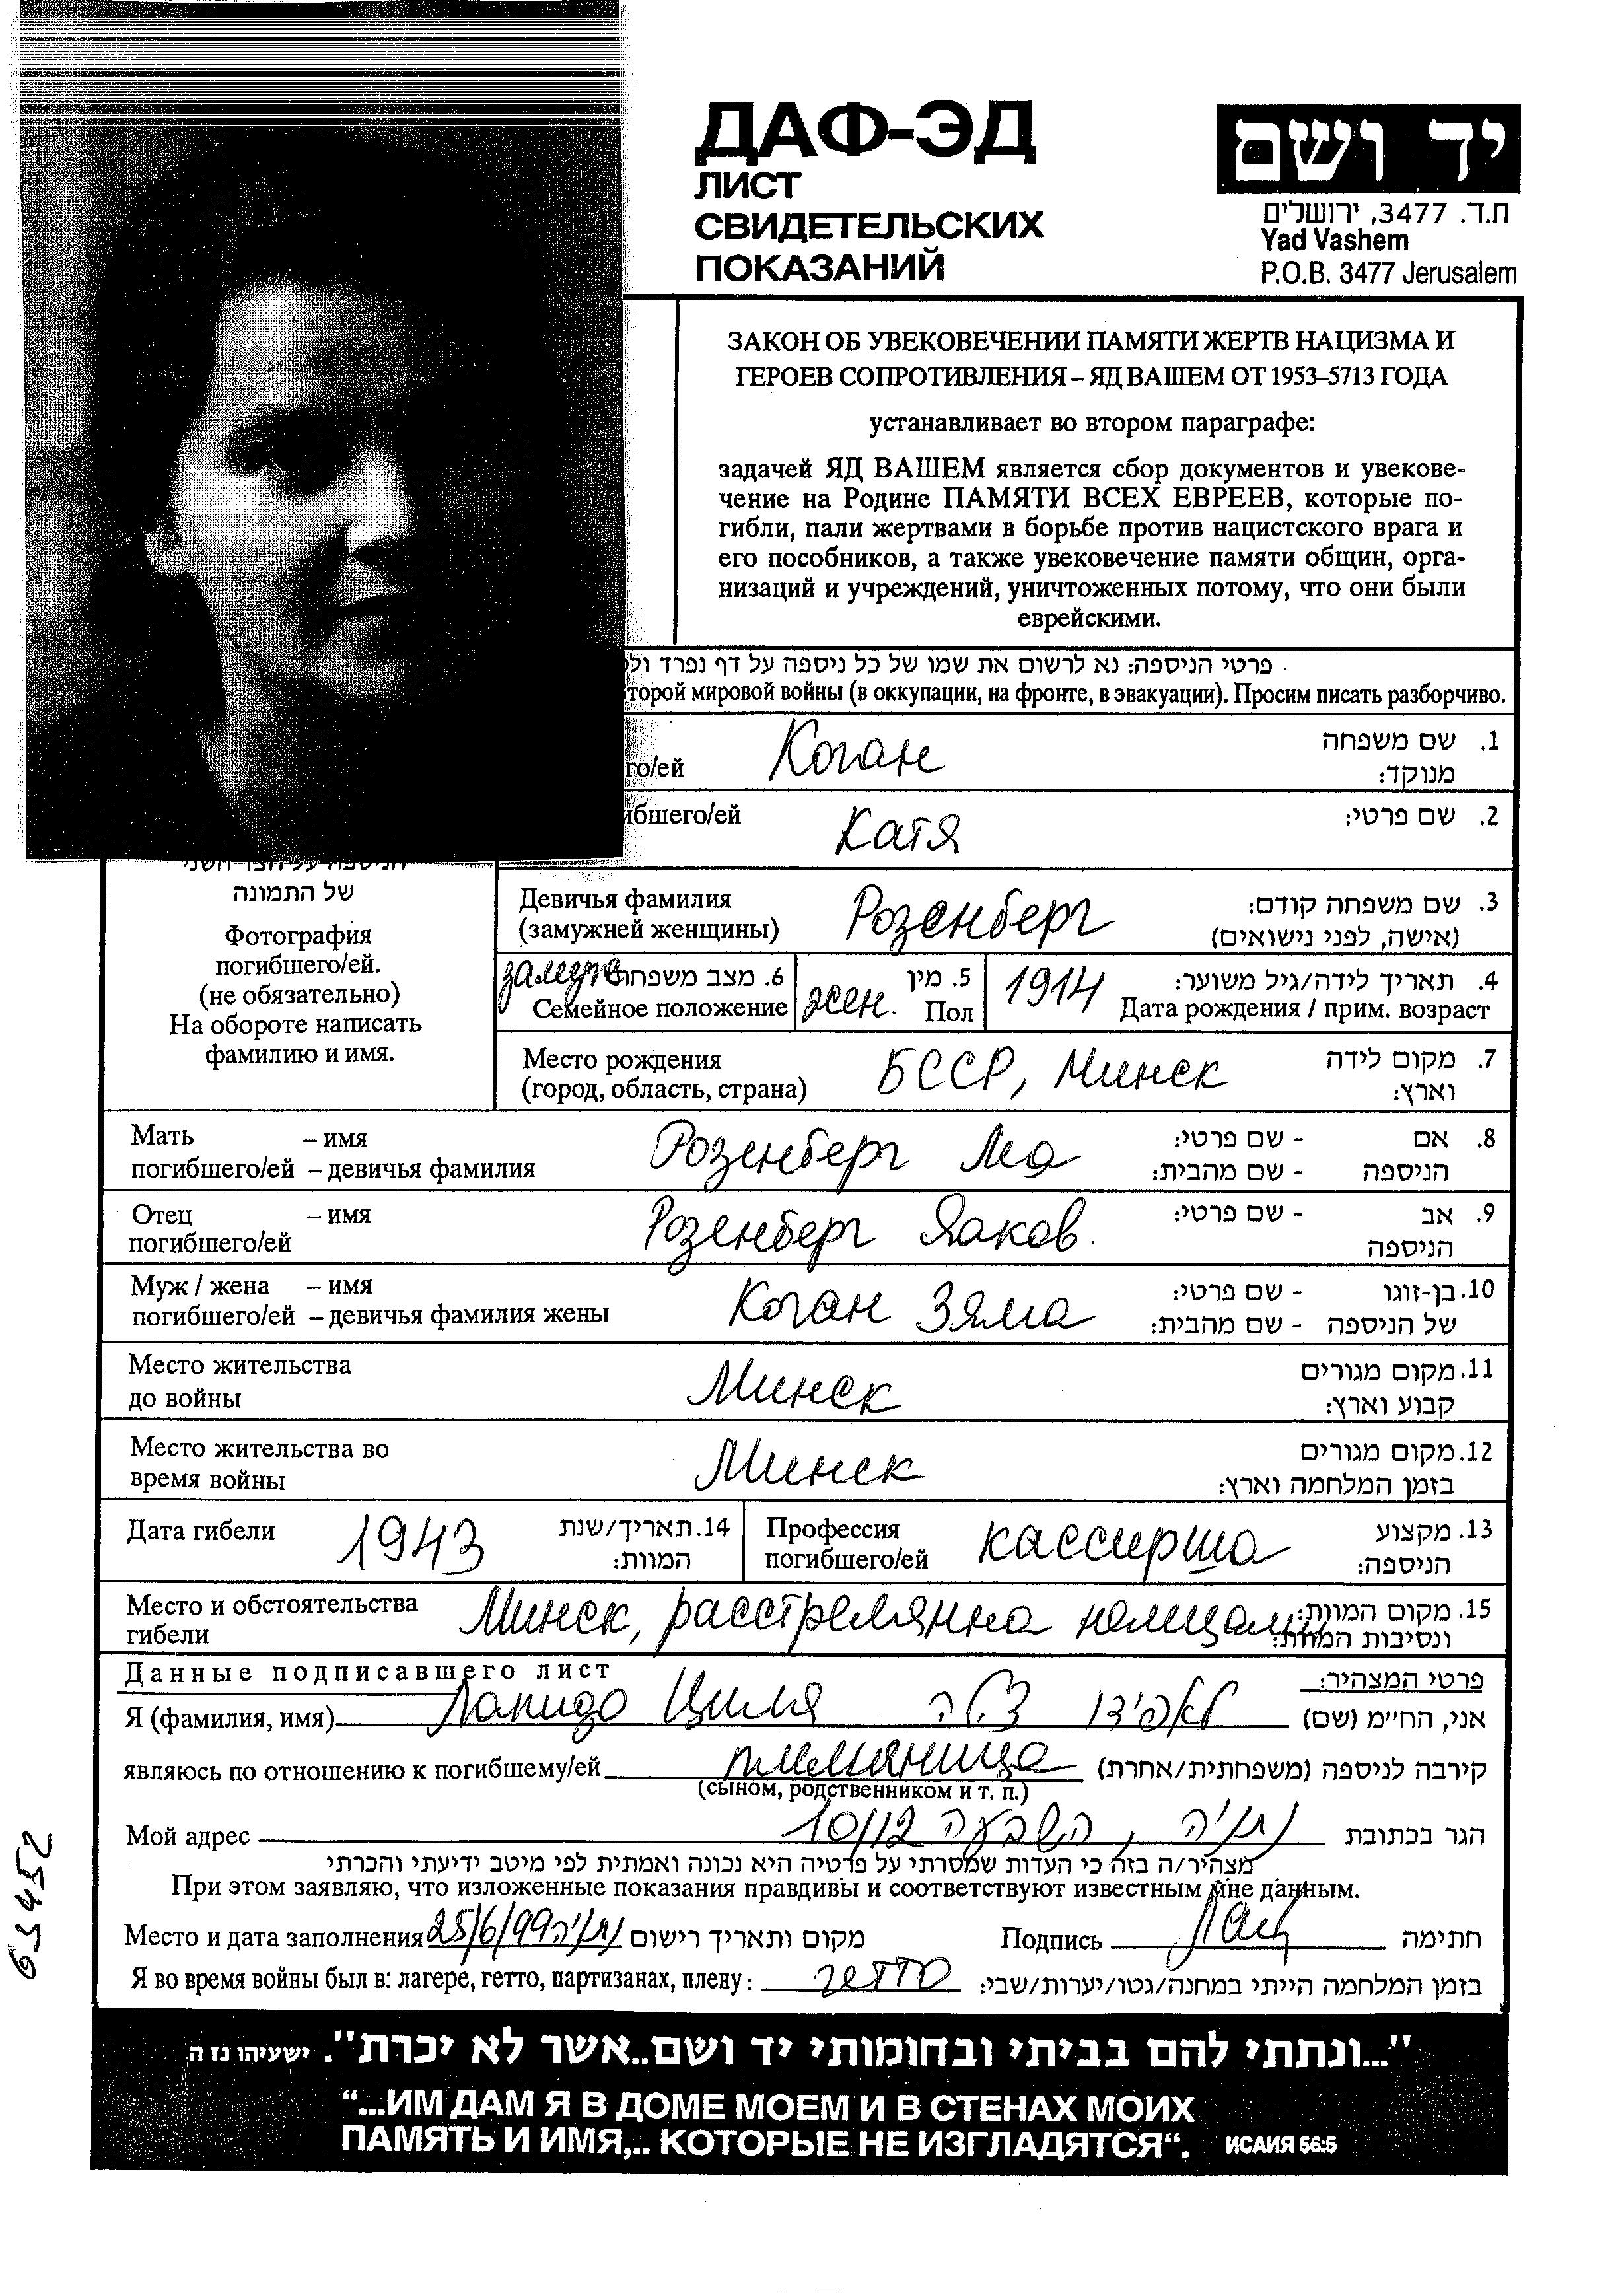 ДАФ-ЭД
ЛИСТ
СВИДЕТЕЛЬСКИХ
ПОКАЗАНИЙ
יד ושם
ת.ד. 3477, ירושלים
Yad Vashem
P.O.B. 3477 Jerusalem
ЗАКОН ОБ УВЕКОВЕЧЕНИИ ПАМЯТИ ЖЕРТВ НАЦИЗМА И
ГЕРОЕВ СОПРОТИВЛЕНИЯ – ЯД ВАШЕМ ОТ 1953–5713 ГОДА
устанавливает во втором параграфе:
задачей ЯД ВАШЕМ является сбор документов и увекове-
чение на Родине ПАМЯТИ ВСЕХ ЕВРЕЕВ, которые по-
гибли, пали жертвами в борьбе против нацистского врага и
его пособников, а также увековечение памяти общин, орга-
низаций и учреждений, уничтоженных потому, что они были
еврейскими.
פרטי הניספה: נא לרשום את שמו של כל ניספה על דף נפרד
торой мировой войны (в оккупации, на фронте, в эвакуации). Просим писать разборчиво.
го/ей Коган 1. שם משפחה
מנוקד:
ибшего/ей Катя 2. שם פרטי:
של התמונה
Фотография
погибшего/ей.
(не обязательно)
На обороте написать
фамилию и имя.
Девичья фамилия Розенберг 3. שם משפחה קודם:
(замужней женщины) (אישה, לפני נישואים)
замуж 6. מצב משפחתי 5. מין 1914 4. תאריך לידה/גיל משוער:
Семейное положение жен. Пол Дата рождения / прим. возраст
Место рождения БССР, Минск 7. מקום לידה
(город, область, страна) וארץ:
Мать – имя Розенберг 8. אם - שם פרטי:
погибшего/ей – девичья фамилия הניספה - שם מהבית:
Отец – имя Розенберг Яаков. 9. אב - שם פרטי:
погибшего/ей הניספה
Муж / жена – имя Коган Зяма 10. בן-זוגו - שם פרטי:
погибшего/ей – девичья фамилия жены של הניספה - שם מהבית:
Место жительства Минск 11. מקום מגורים
до войны קבוע וארץ:
Место жительства во Минск 12. מקום מגורים
время войны בזמן המלחמה וארץ:
Дата гибели 1943 14. תאריך/שנת Профессия кассирша 13. מקצוע
המוות: погибшего/ей הניספה:
Место и обстоятельства Минск, расстрелянна немцами 15. מקום המוות:
гибели ונסיבות המוות:
Данные подписавшего лист פרטי המצהיר:
Я (фамилия, имя) Лапидо Циля לאפידו צילה אני, החי״מ (שם)
являюсь по отношению к погибшему/ей племяница קירבה לניספה (משפחתית/אחרת)
(сыном, родственником и т. п.)
Мой адрес נתניה, השבעה 10/12 הגר בכתובת
מצהיר/ה בזה כי העדות שמסרתי על פרטיה היא נכונה ואמתית לפי מיטב ידיעתי והכרתי
При этом заявляю, что изложенные показания правдивы и соответствуют известным мне данным.
Место и дата заполнения 25/6/99 נתניה מקום ותאריך רישום Подпись חתימה
Я во время войны был в: лагере, гетто, партизанах, плену: гетто בזמן המלחמה הייתי במחנה/גטו/יערות/שבי:
63452
"...ונתתי להם בביתי ובחומותי יד ושם..אשר לא יכרת". ישעיהו נז ה
“...ИМ ДАМ Я В ДОМЕ МОЕМ И В СТЕНАХ МОИХ
ПАМЯТЬ И ИМЯ,.. КОТОРЫЕ НЕ ИЗГЛАДЯТСЯ“. ИСАИЯ 56:5